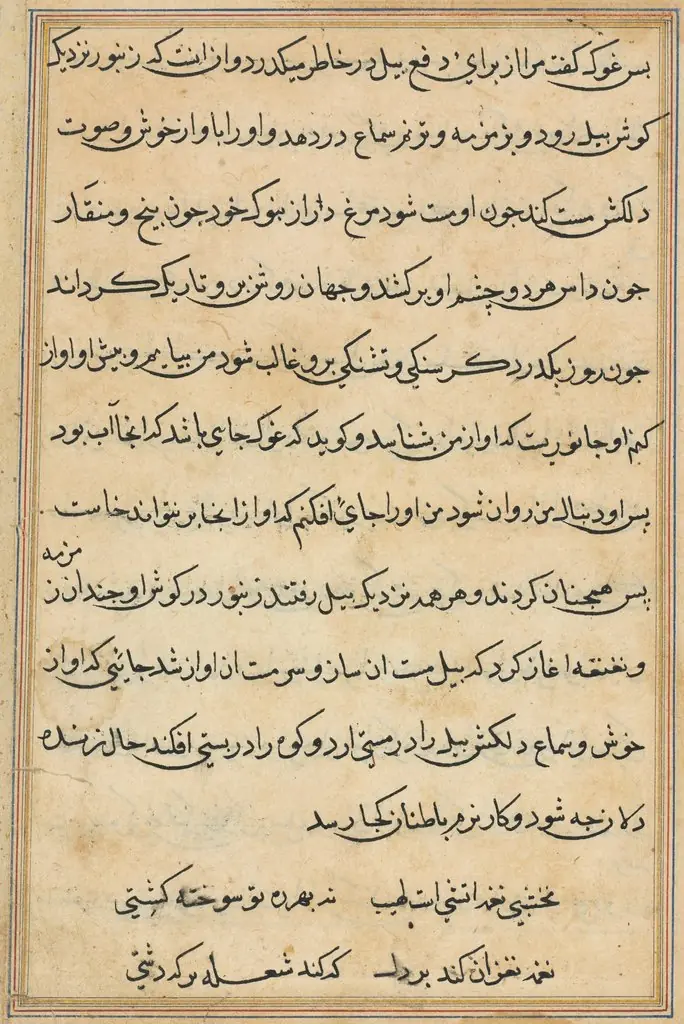 بس غوک کفت مرا از برای دفع بیل در خاطر میکدرد و ان انست که زنبور نزدیک
کوش بیل رود و بزمزمه و ترنم سماع در دهد و او را باواز خوش و صوت
دلکش مست کند جون او مست شود مرغ دراز بنوک خود جون بیخ و منقار
جون داس هر دو چشم او برکشد و جهان روشن برو تاریک کرداند
جون روز بکدرد کرسنکی و تشنکی برو غالب شود من بیایم و بیش او اواز
کنم او جانوریست که اواز من بشناسد و کوید که غوک جایی باشد که انجا آب بود
پس او دنبال من روان شود من او را جایی افکنم که او از انجا بر نتواند خاست
پس همچنان کردند و هر همه نزدیک بیل رفتند زنبور در کوش او جندان زمزمه
و نغنغه اغاز کرد که بیل مست ان ساز و سرمست ان اواز شد جائیی که اواز
خوش و سماع دلکش بیل را در مستی ارد و کوه را در بستی افکند حال زنده
دلان جه شود و کار نرم باطنان کجا رسد
نخشبی نغمه اتشی است طیب نه بهرزه تو سوخته کشیتی
نغمه نغز ان کند بر دل که کند شعله بر که دشتی